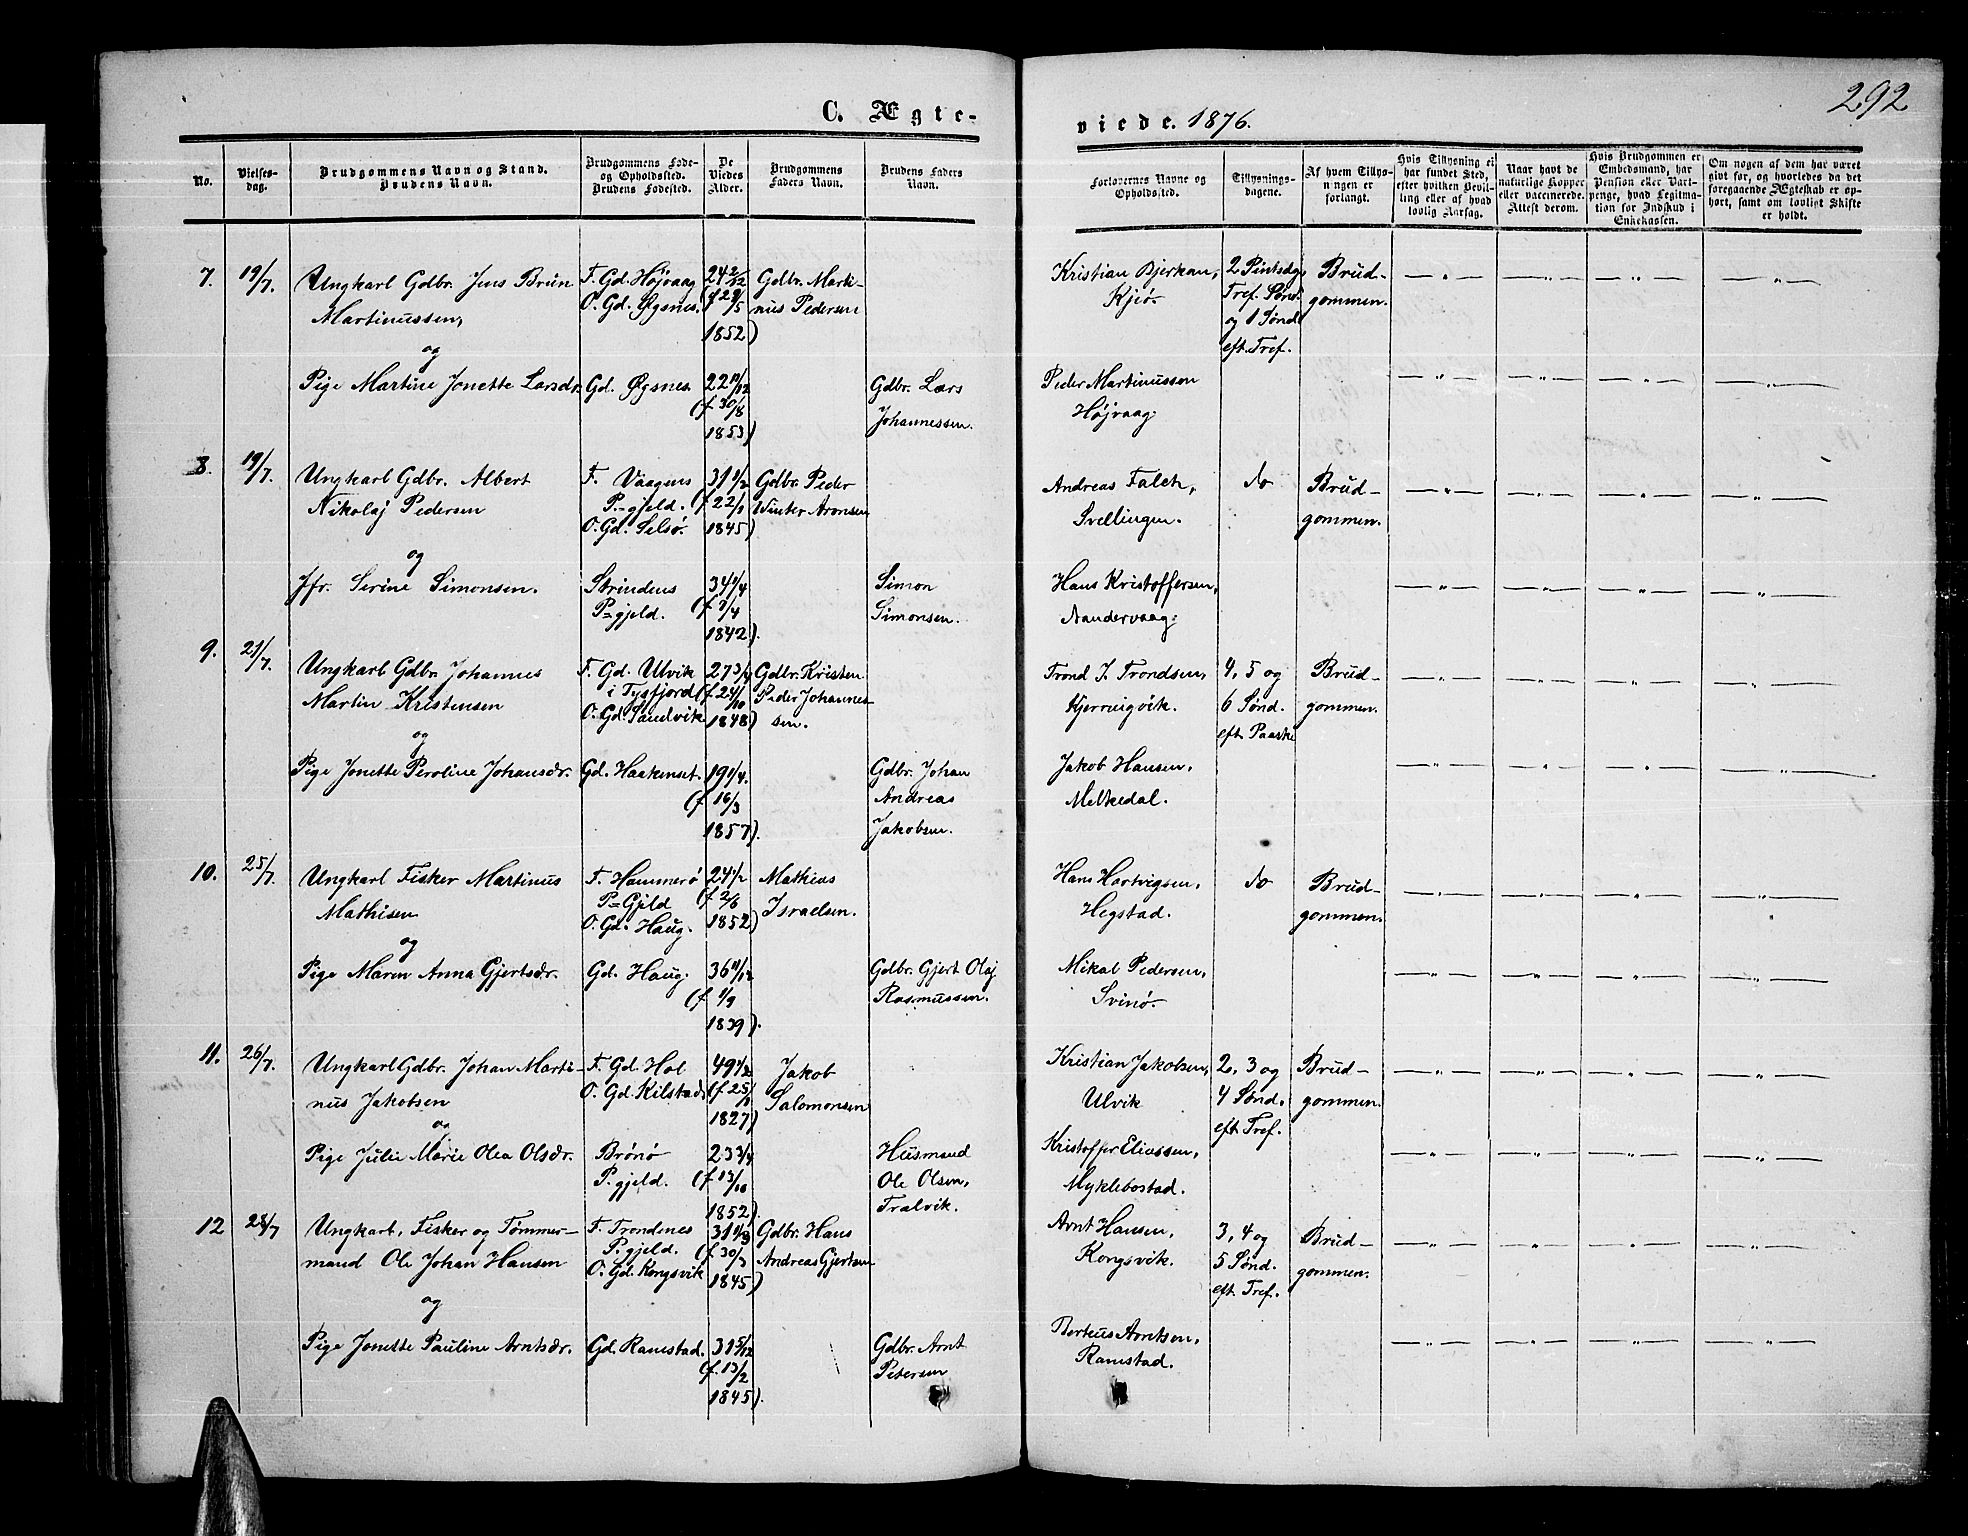 292
C. Ægte-
viede. 1876.
No.
Vielses-
dag.
Brudgommens Navn og Stand.
Brudens Navn.
Brudgommens Føde-
og Opholdssted.
Brudens Fødested.
De
Viedes
Alder.
Brudgommens
Faders Navn.
Brudens Faders
Navn.
Forlovernes Navne og
Opholdssted.
Tillysnings-
dagene.
Af hvem Tillys-
ningen er
forlangt.
Hvis Tillysning ei
har fundet Sted,
efter hvilken Bevil-
ling eller af hvad
lovlig Aarsag.
Naar havt de
naturlige Kopper
eller vaccinerede.
Attest derom.
Hvis Brudgommen er
Embedsmand, har
Pension eller Vart-
penge, hvad Legitima-
tion for Indskud i
Enkekassen.
Om nogen af dem har været
gift før, og hvorledes da det
foregaaende Ægteskab er op-
hørt, samt om lovligt Skifte
er holdt.
7.
19/7.
Ungkarl Gdbr. Jens Brun
Martinussen,
og
Pige Martine Jonette Larsdr.
F. Gd. Højvaag
O. Gd. Øgsnes.
Gd. Øgsnes
24 2/12
(f 29/5
1852)
22 11/12
(f. 30/8
1853)
Gdbr. Marti-
nus Pedersen
Gdbr. Lars
Johannessen.
Kristian Bjerkan,
Kjiø.
Peder Martinussen
Højvaag.
2 Pintsdg,
Tref. Sønd.
og 1 Sønd.
eft. Tref.
Brud-
gommen.
8.
19/7.
Ungkarl Gdbr. Albert
Nikolaj Pedersen
og
Jfr. Serine Simonsen.
F. Vaagens
P.-gjeld.
O. Gd. Selsø.
Strindens
P=gjeld.
31 1/2
(f 22/1
1845)
34 1/4
(f 7/4
1842).
Gdbr. Peder
Winter Aronsen
Simon
Simonsen.
Andreas Falch,
Svellingen.
Hans Kristoffersen,
Sandervaag.
do
Brud-
gommen.
9.
21/7.
Ungkarl Gdbr. Johannes
Martin Kristensen
og
Pige Jonette Peroline Johansdr.
F. Gd. Ulvik
i Tysfjord
O. Gd. Sandvik
Gd. Haakenset.
27 3/4
(f. 24/10
1848)
19 1/4.
(f 16/3
1857).
Gdbr. Kristen
Peder Johannes-
sen.
Gdbr. Johan
Andreas
Jakobsen.
Trond J. Trondsen,
Kjerringvik.
Jakob Hansen,
Melkedal.
4, 5 og
6 Sønd.
eft. Paaske
Brud-
gommen.
10.
25/7.
Ungkarl Fisker Martinus
Mathisen
og
Pige Maren Anna Gjertsdr.
F. Hammerø
P=Gjeld
O. Gd. Haug.
Gd. Haug.
24 1/2
(f 2/6
1852)
36 11/12
(f 1/9
1839).
Mathias
Israelsen.
Gdbr. Gjert Olaj
Rasmussen.
Hans Hartvigsen,
Hegstad.
Mikal Pedersen,
Svinø.
do
Brud-
gommen.
11.
26/7.
Ungkarl Gdbr. Johan Marti-
nus Jakobsen
og
Pige Julie Marie Olea Olsdr.
F. Gd. Hol
O. Gd. Kilstad
Brønø
P. gjeld.
49 1/2
(f. 25/1
1827)
23 3/4
(f 13/10
1852).
Jakob
Salomonsen
Husmand
Ole Olsen,
Tralvik.
Kristian Jakobsen,
Ulvik
Kristoffer Eliassen,
Myklebostad.
2, 3 og
4 Sønd.
eft. Tref.
Brud-
gommen.
12
28/7
Ungkarl, Fisker og Tømmer-
mand Ole Johan Hansen
og
Pige Jonette Pauline Arntsdr.
F. Trondenes
P. gjeld.
O. Gd. Kongsvik
Gd. Ramstad.
31 1/3
(f. 30/3
1845)
31 5/12
(f. 13/2
1845).
Gdbr. Hans
Andreas Gjertsen
Gdbr. Arnt
Petersen
Arnt Hansen,
Kongsvik.
Berteus Arntsen,
Ramstad.
3, 4 og
5 Sønd.
eft. Tref.
Brud-
gommen.